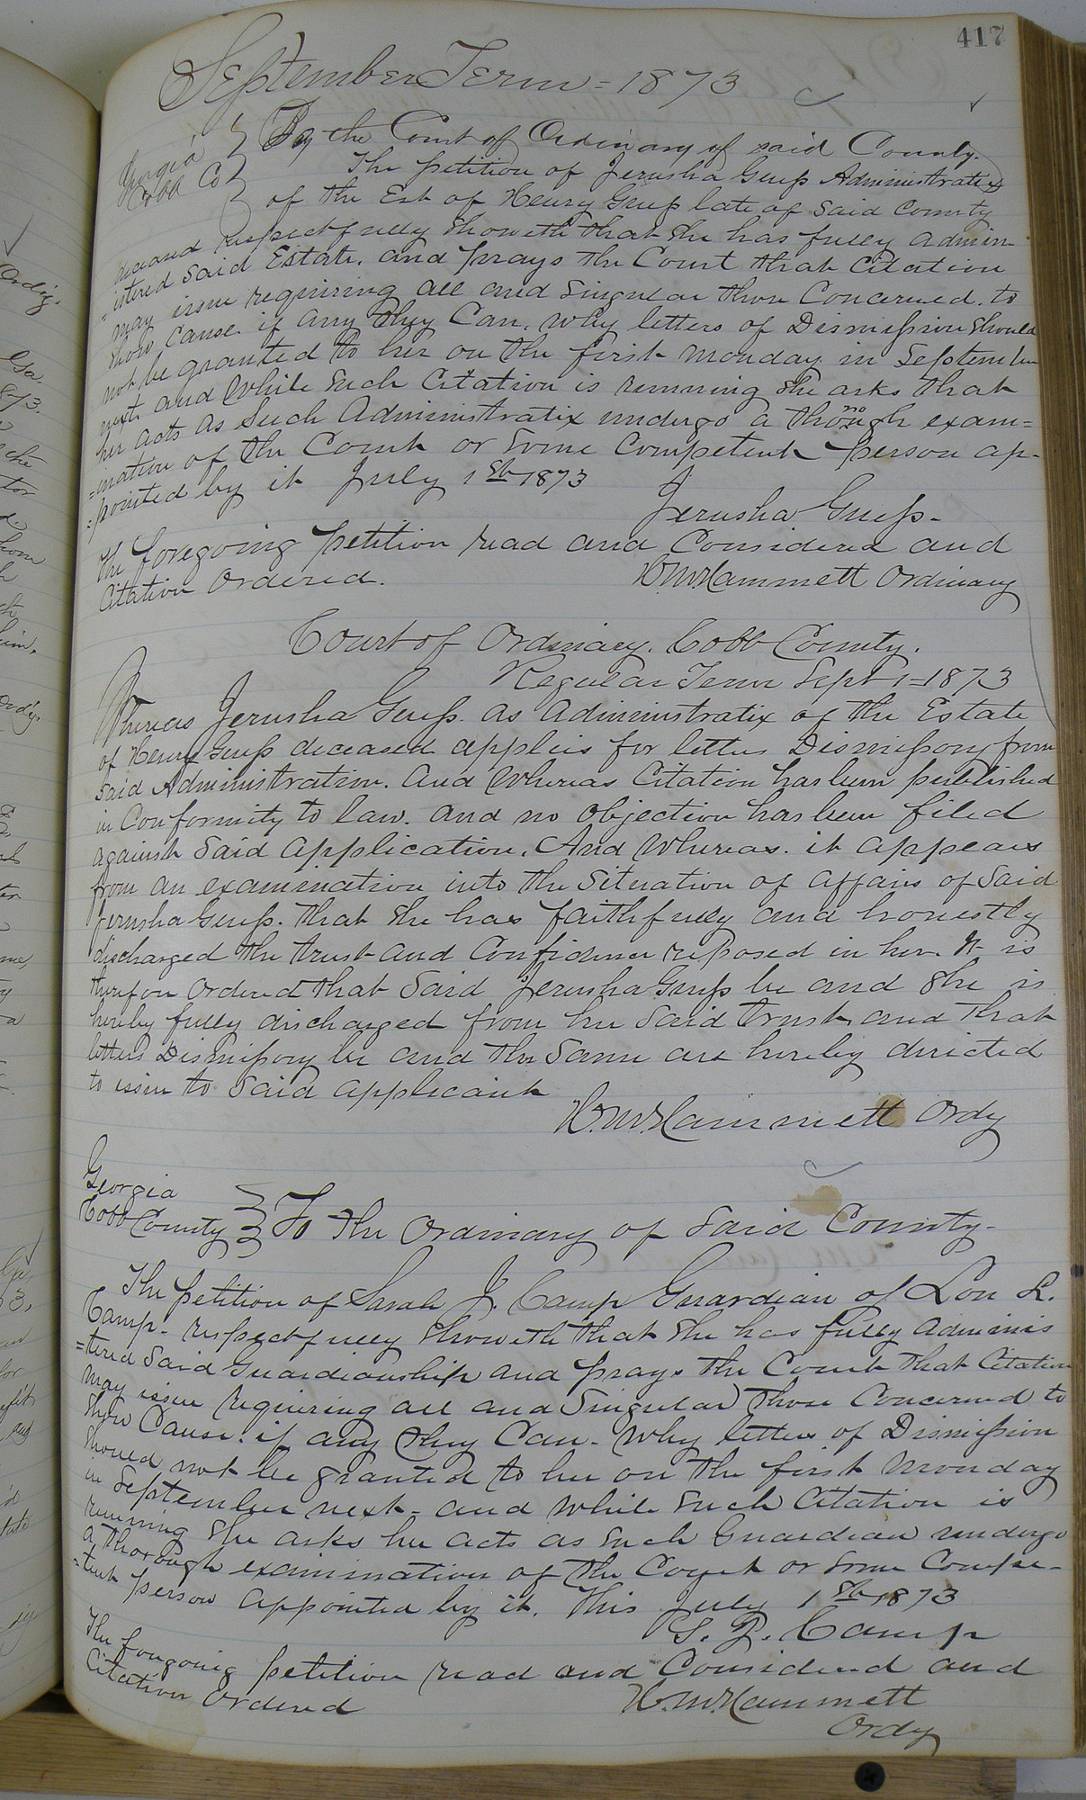 417
September Term = 1873
Georgia
Cobb Co
By the Court of Ordinary of said County.
The petition of Jerusha Guess Administratrix
of the Est of Henry Guess late of Said County
deceased respectfully Showeth that She has fully admin
=istered Said Estate. and prays the Court that Citation
may issue requiring all and Singular those Concerned. to
Show Cause. if any they Can. why letters of Dismission Should
not be granted to her on the first Monday in September
next. and while Such Citation is running She asks that
her acts as Such Administratix undergo a thorough exam=
=ination of the Court or Some Competent person ap-
=pointed by it July 1st 1873
Jerusha Guess-
The foregoing petition read and Considered and
Citation Ordered.
H. M. Hammett Ordinary
Court of Ordinary. Cobb County.
Regular Term Sept 1= 1873
Whereas Jerusha Guess. as Administratix of the Estate
of Henry Guess deceased applies for letters Dismissory from
Said Administration. and Whereas Citation has been published
in Conformity to law. and no objection has been filed
against Said application. And Whereas. it appears
from an examination into the Situation of affairs of Said
Jerusha Guess. that She has faithfully and honestly
discharged the trust and Confidence reposed in her. It is
therefore Ordered that Said Jerusha Guess be and She is
hereby fully discharged from her Said trust and that
letters Dismissory be and the Same are hereby directed
to issue to Said applicant
H. M. Hammett Ordy
Georgia
Cobb County
To the Ordinary of Said County-
The petition of Sarah J. Camp Guardian of Lou R.
Camp- respectfully Showeth that She has fully adminis
=tered Said Guardianship and prays the Court that Citation
may issue requiring all and Singular those Concerned to
Show Cause. if any they Can- Why letters of Dismission
Should not be granted to her on the first Monday
in September next- and while Such Citation is
running She asks her acts as Such Guardian undergo
a thorough examination of the Court or Some Compe-
=tent person appointed by it. This July 1st 1873
S. J. Camp
The foregoing petition read and Considered and
Citation Ordered
H. M. Hammett
Ordy